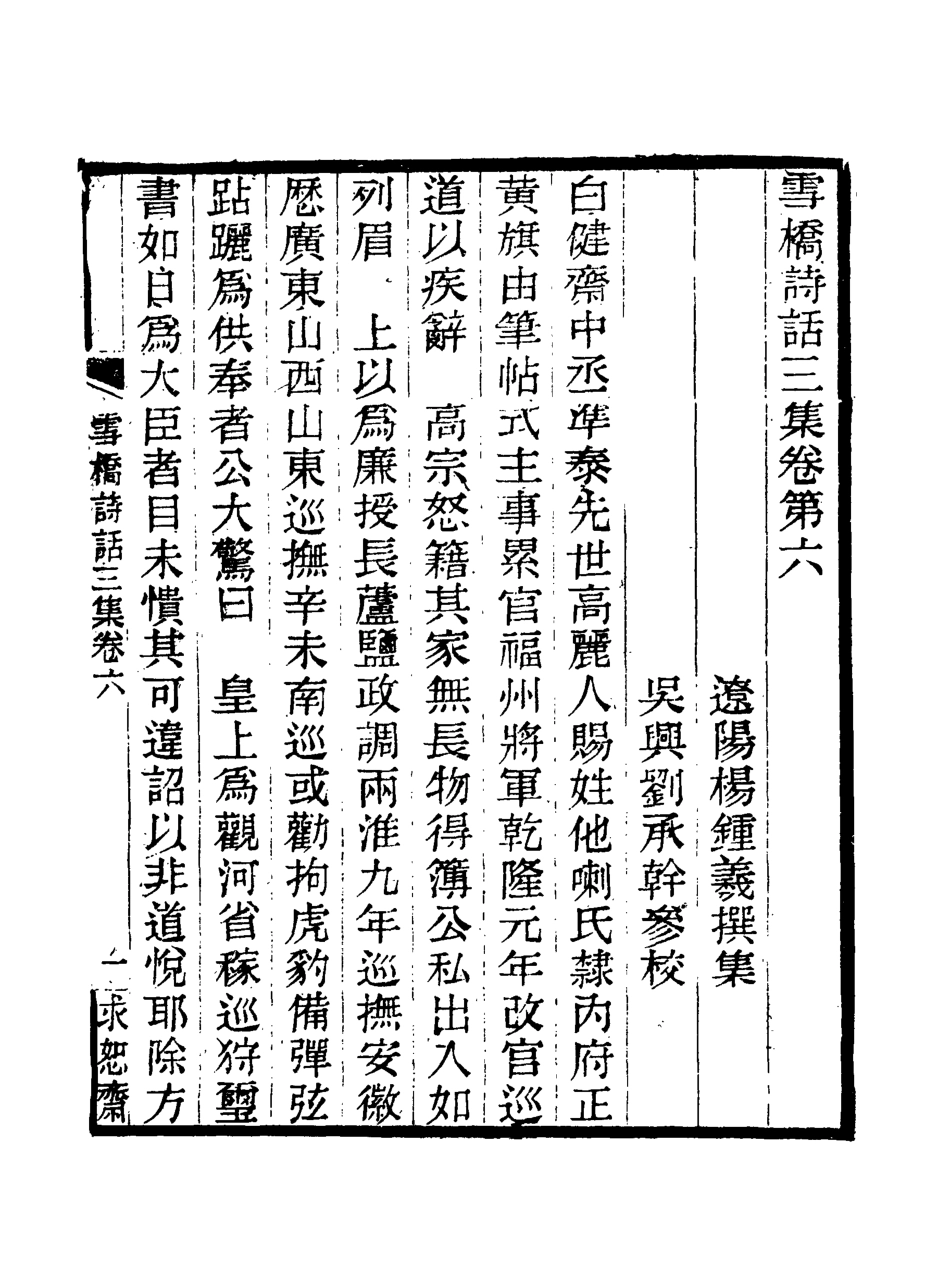 雪橋詩話三集卷第六
遼陽楊鍾羲撰集
吳興劉承幹參校
白健齋中丞準泰先世高麗人賜姓他喇氏隸內府正
黃旗由筆帖式主事累官福州將軍乾隆元年改官巡
道以疾辭　高宗怒籍其家無長物得簿公私出入如
列眉　上以爲廉授長蘆鹽政調兩淮九年巡撫安徽
歷廣東山西山東巡撫辛未南巡或勸拘虎豹備彈弦
跕躧爲供奉者公大驚曰　皇上爲觀河省稼巡狩璽
書如日爲大臣者目未憒其可違詔以非道悅耶除方
雪橋詩話三集卷六
一
求恕齋